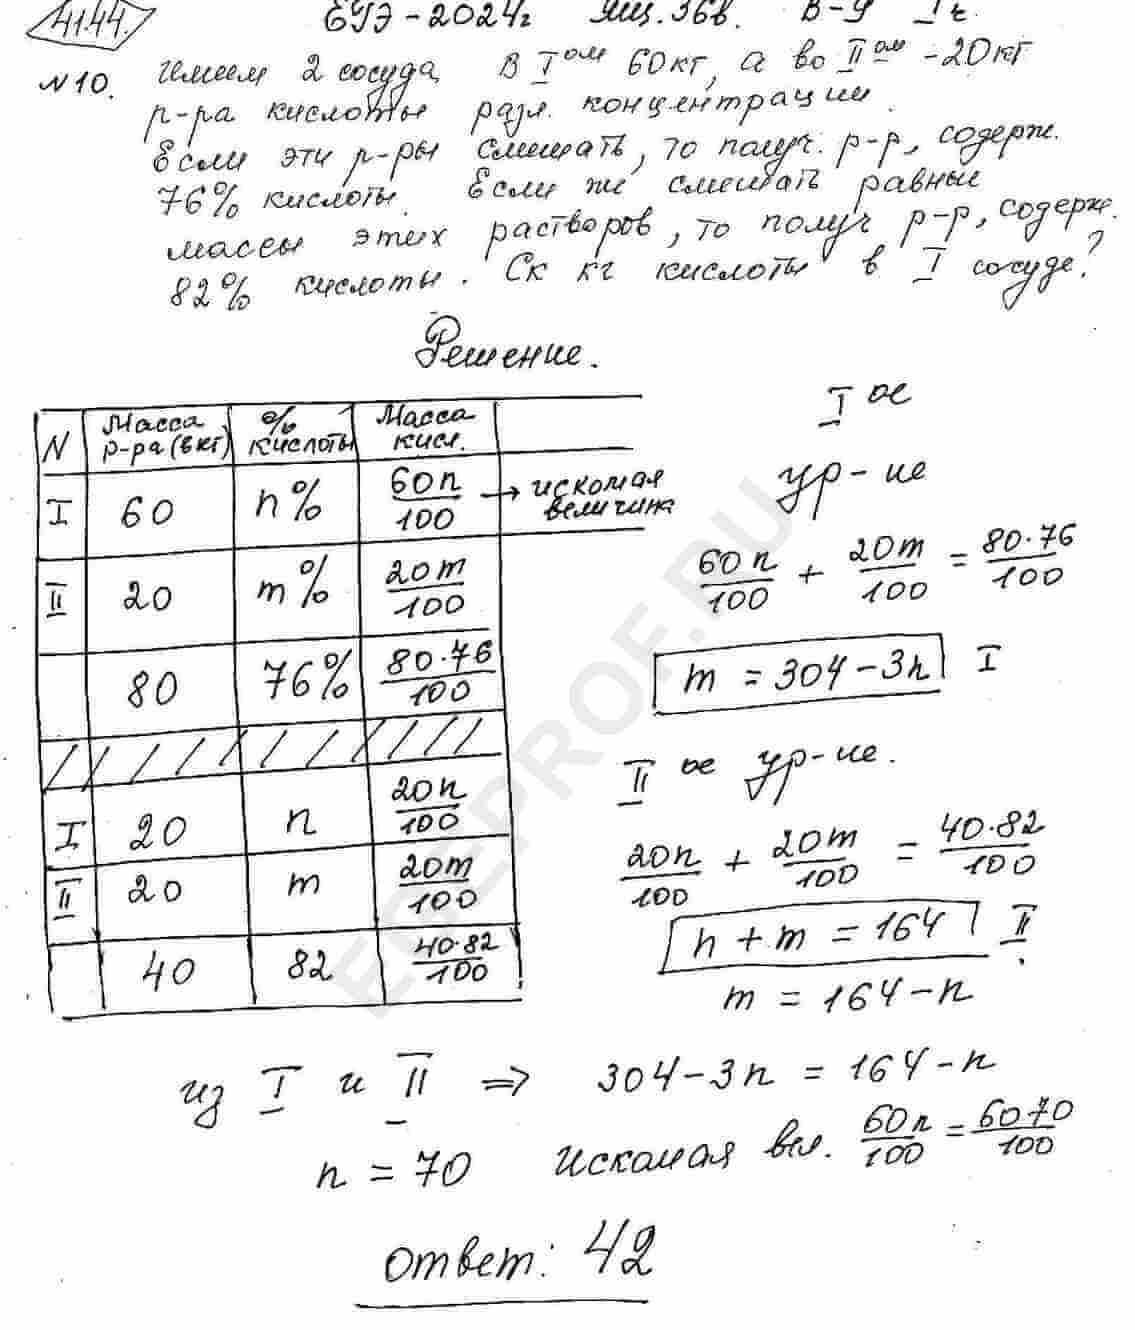 4144.
ЕГЭ-2024г Ящ. 36в. В-9 Iч.
N10. Имеем 2 сосуда. В Iом 60кг, а во IIом - 20кг
р-ра кислоты разл. концентрации.
Если эти р-ры смешать, то получ. р-р, содерж.
76% кислоты. Если же смешать равные
массы этих растворов, то получ р-р, содерж.
82% кислоты. Ск кг кислоты в I сосуде?
Решение.
N Масса р-ра (в кг) % кислоты Масса кисл.
I 60 n% 60n/100 → искомая величина
II 20 m% 20m/100
80 76% 80·76/100
I 20 n 20n/100
II 20 m 20m/100
40 82 40·82/100
I ое
ур-ие
60n/100 + 20m/100 = 80·76/100
m = 304-3n I
II ое ур-ие.
20n/100 + 20m/100 = 40·82/100
n + m = 164 II.
m = 164-n
из I и II ⇒ 304-3n = 164-n
n = 70 Искомая вел. 60n/100 = 60·70/100
Ответ: 42
EGEPROF.RU